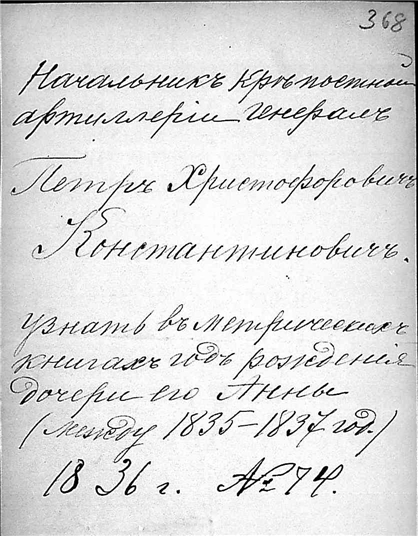 368
Начальникъ Крѣпостной
артиллеріи Генералъ
Петръ Христофоровичъ
Константиновичъ.
узнать въ метрическихъ
книгахъ годъ рожденія
дочери его Анны
(между 1835-1837 год.)
1836 г. № 74.